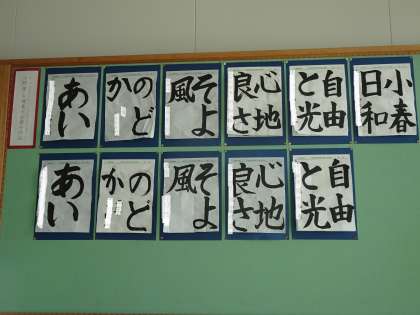 あい
のど
か
そよ
風
心地
良さ
自由
と光
小春
日和
あい
のど
か
そよ
風
心地
良さ
自由
と光